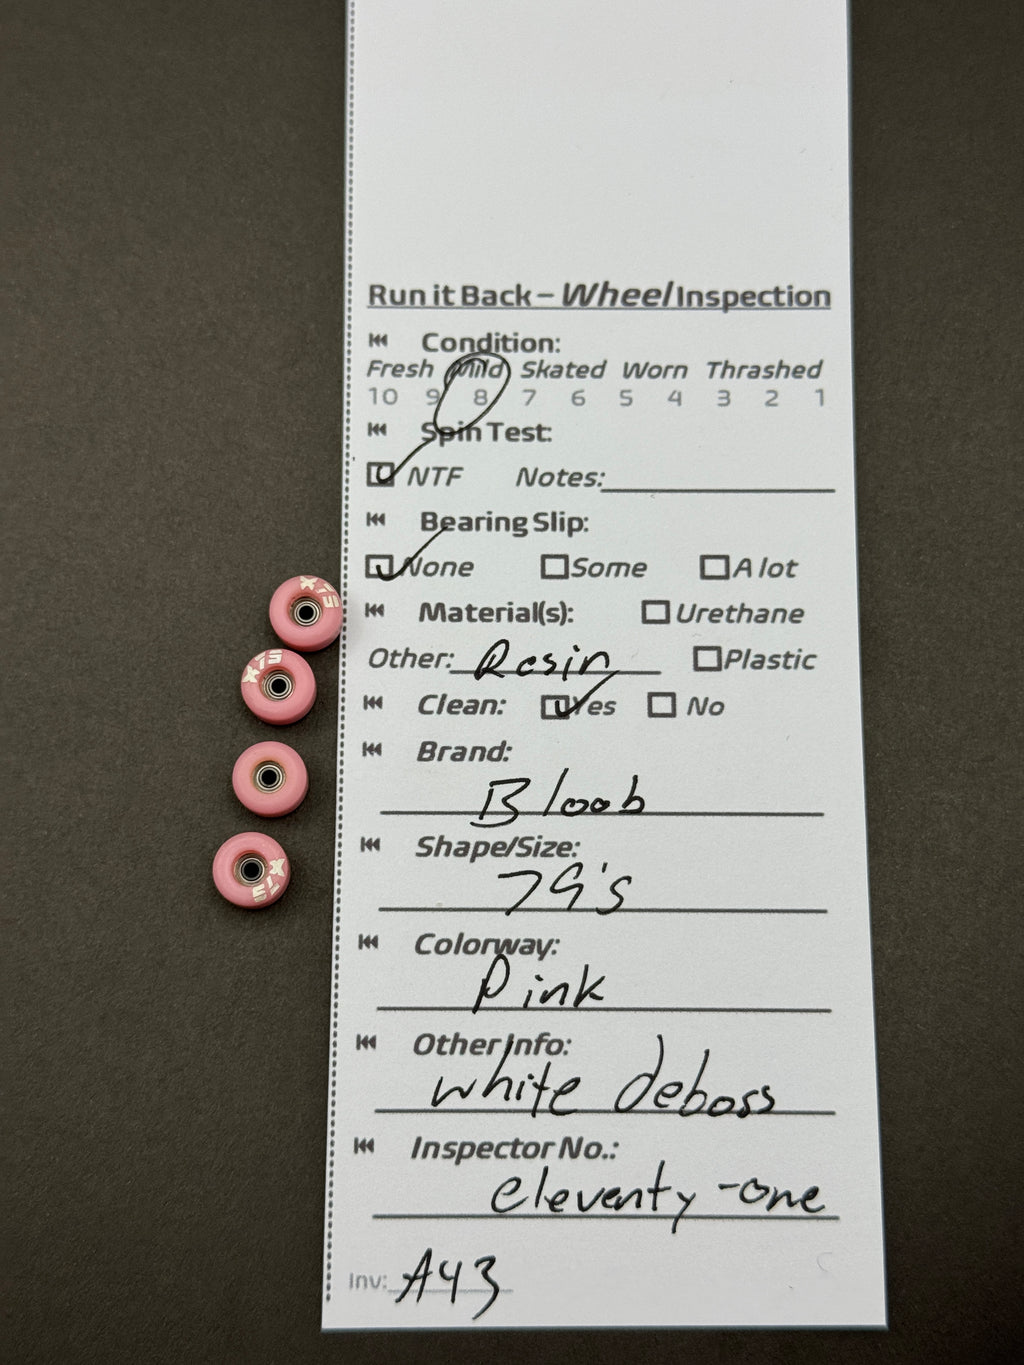 Run it Back – Wheel Inspection
Condition:
Fresh Mild Skated Worn Thrashed
10 9 8 7 6 5 4 3 2 1
Spin Test:
NTF Notes:
Bearing Slip:
None Some A lot
Material(s): Urethane
Other: Resin Plastic
Clean: Yes No
Brand:
Bloob
Shape/Size:
79's
Colorway:
Pink
Other Info:
white deboss
Inspector No.:
eleventy-one
Inv: A43
SIX
SIX
SIX